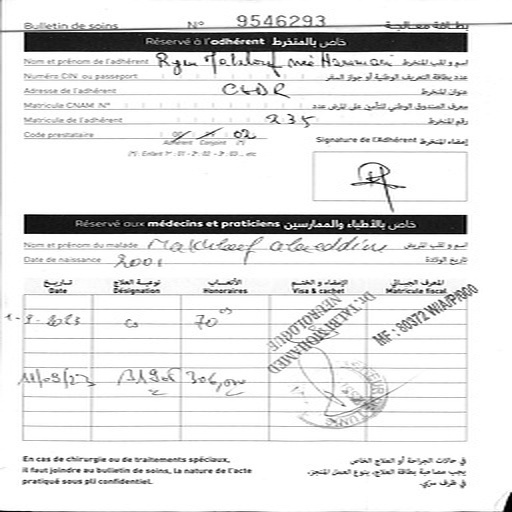 Bulletin de soins N° 9546293 بطاقة معالجة
Réservé à l'adhérent خاص بالمنخرط
Nom et prénom de l'adhérent اسم و لقب المنخرط
Numéro CIN ou passeport عدد بطاقة التعريف الوطنية أو جواز السفر
Adresse de l'adhérent عنوان المنخرط
Matricule CNAM N° معرف الصندوق الوطني للتأمين على المرض عدد
Matricule de l'adhérent 235 رقم المنخرط
Code prestataire 02
Adhérent Conjoint (*)
Signature de l'Adhérent إمضاء المنخرط
(*) : Enfant 1er : 01 - 2e : 02 - 3e : 03 ... etc
Réservé aux médecins et praticiens خاص بالأطباء والممارسين
Nom et prénom du malade Makhlouf alaeddine اسم و لقب المريض
Date de naissance 2001 تاريخ الولادة
تاريخ نوعية العلاج الأتعاب الإمضاء و الختم المعرف الجبائي
Date Désignation Honoraires Visa & cachet Matricule fiscal
Dr. TALBI MOHAMED
NEUROLOGUE
1-9-2023 cs 70
11/09/23
En cas de chirurgie ou de traitements spéciaux,
il faut joindre au bulletin de soins, la nature de l'acte
pratiqué sous pli confidentiel.
في حالات الجراحة أو العلاج الخاص
يجب مصاحبة بطاقة العلاج، بنوع العمل المنجز،
في ظرف سري.